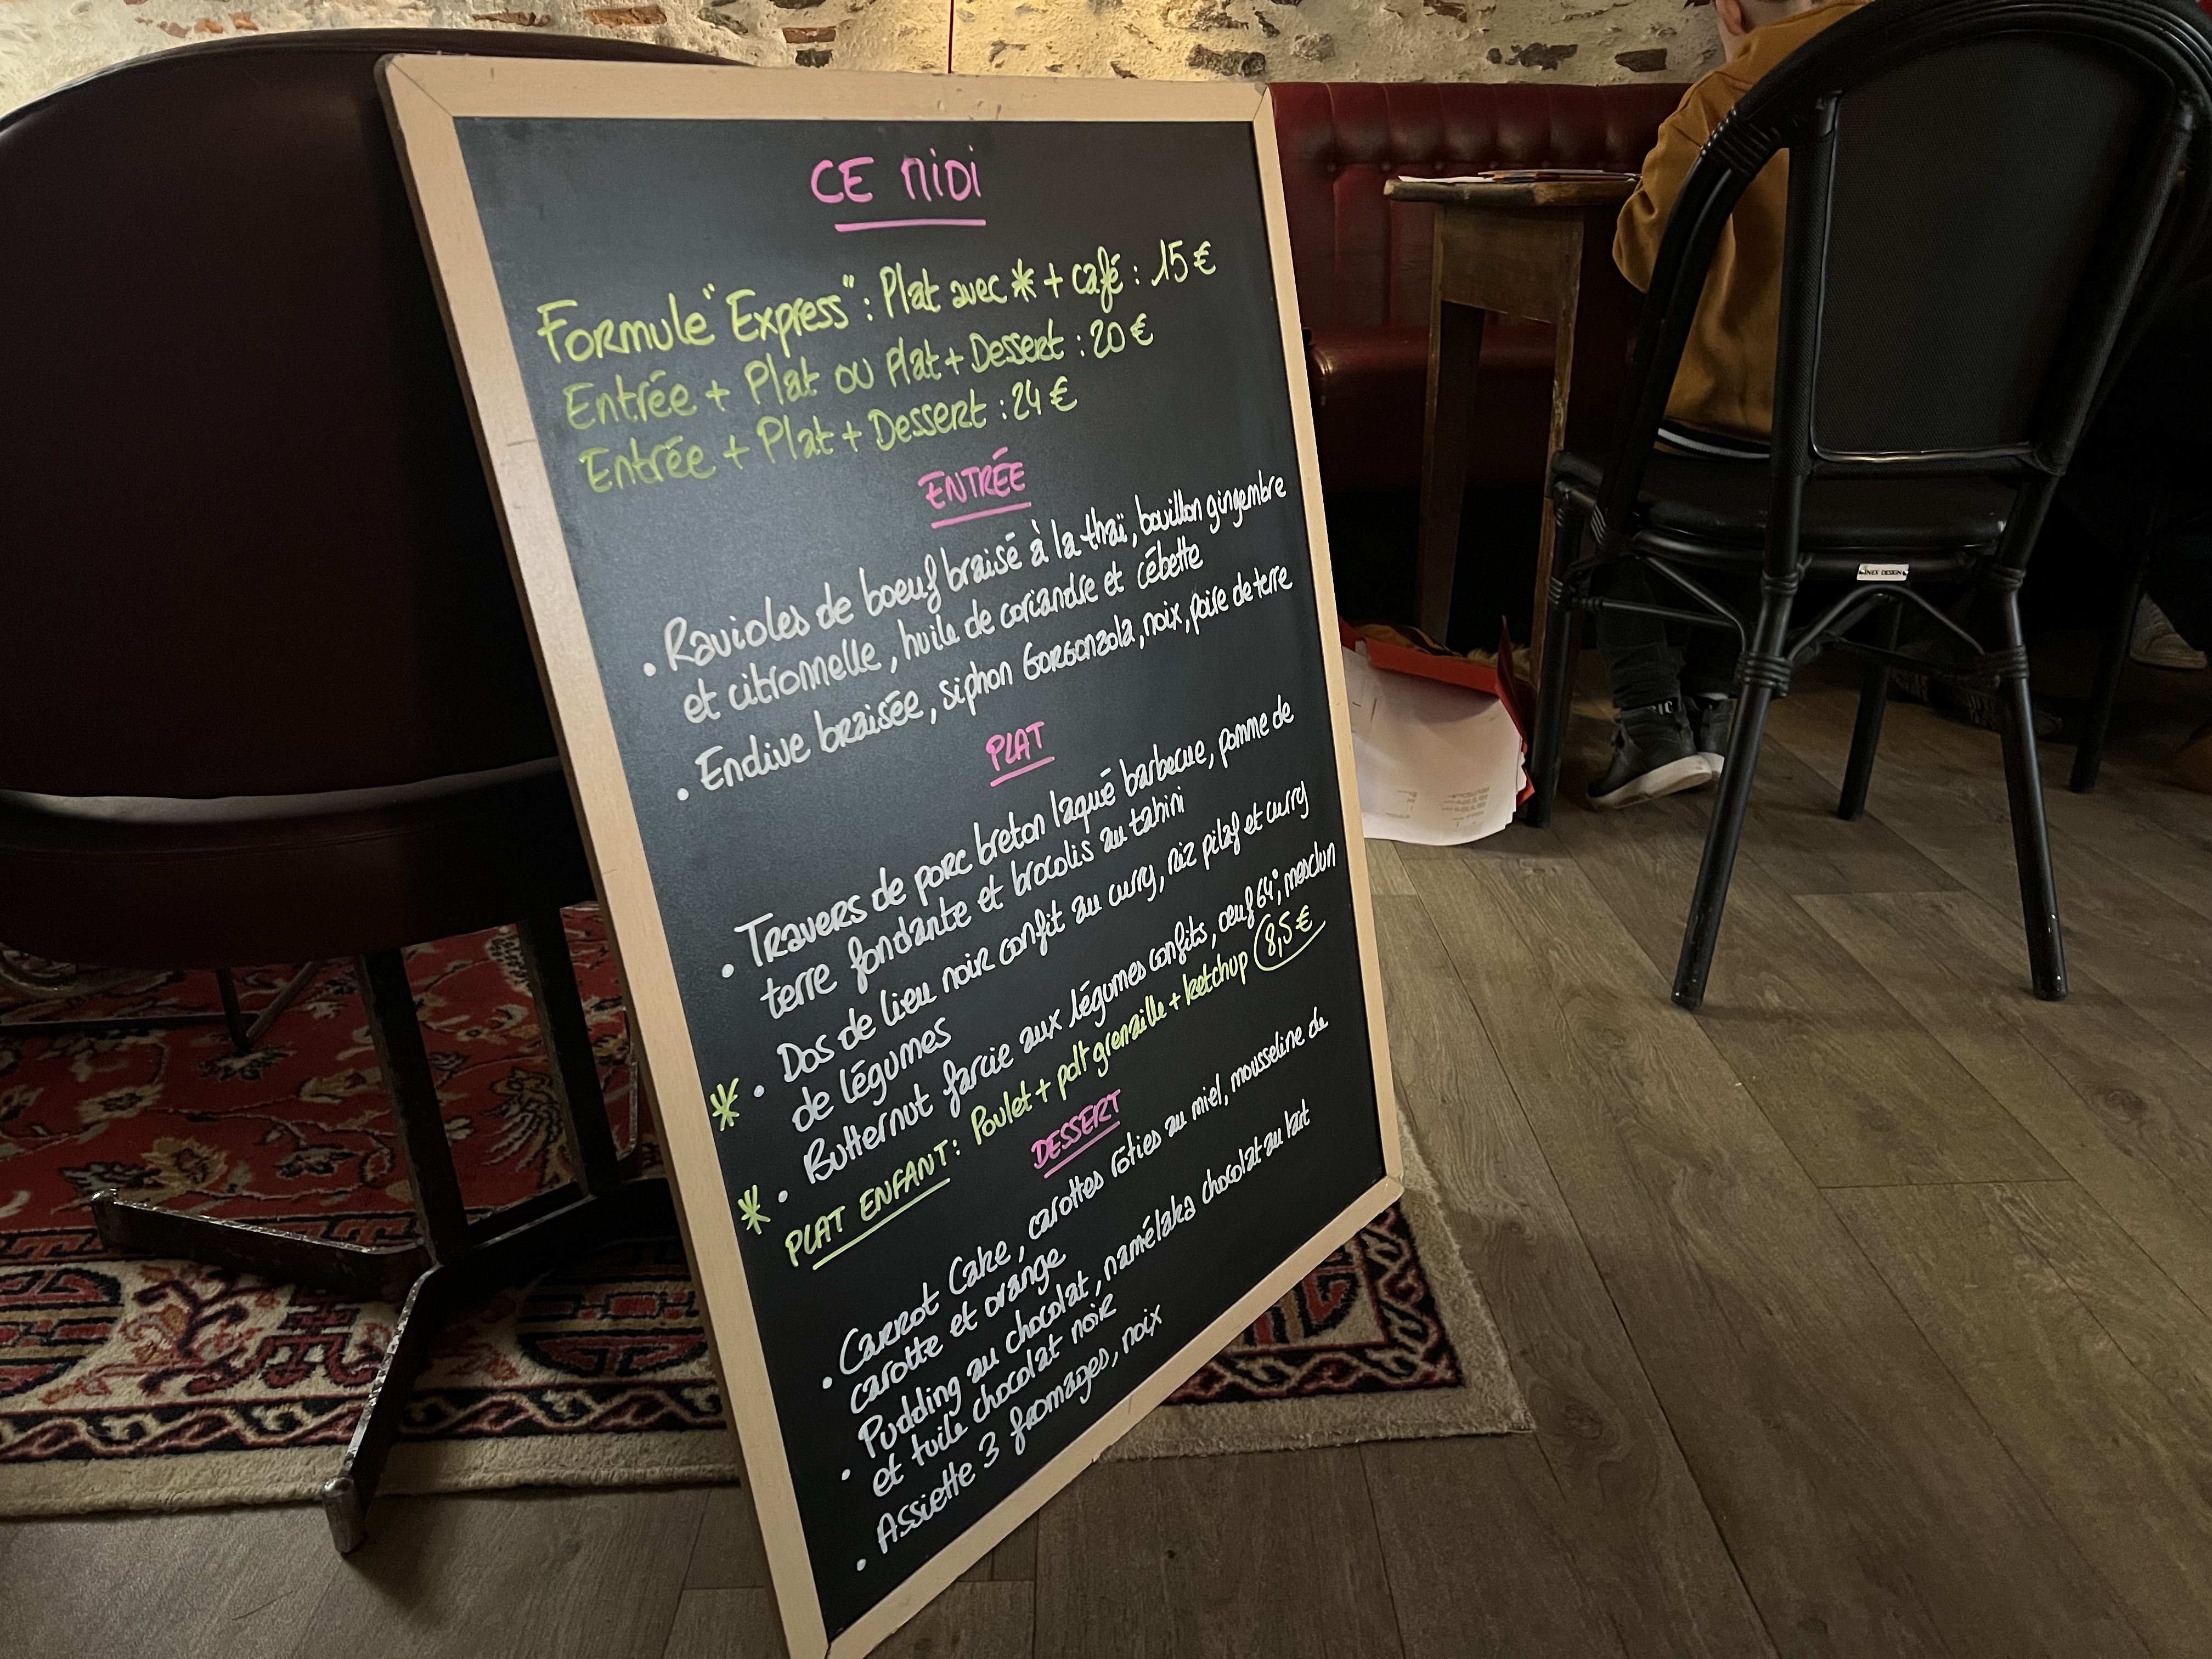 CE MIDI
Formule "Express" : Plat avec * + café : 15 €
Entrée + Plat ou Plat + Dessert : 20 €
Entrée + Plat + Dessert : 24 €
ENTRÉE
• Ravioles de boeuf braisé à la thaï, bouillon gingembre
et citronnelle, huile de coriandre et cébette
• Endive braisée, siphon Gorgonzola, noix, poire de terre
PLAT
• Travers de porc breton laqué barbecue, pomme de
terre fondante et brocolis au tahini
* • Dos de lieu noir confit au curry, riz pilaf et curry
de légumes
* • Butternut farcie aux légumes confits, oeuf 64°, mesclun
PLAT ENFANT : Poulet + pdt grenaille + ketchup 8,5 €
DESSERT
• Carrot Cake, carottes rôties au miel, mousseline de
carotte et orange
• Pudding au chocolat, namélaka chocolat au lait
et tuile chocolat noir
• Assiette 3 fromages, noix